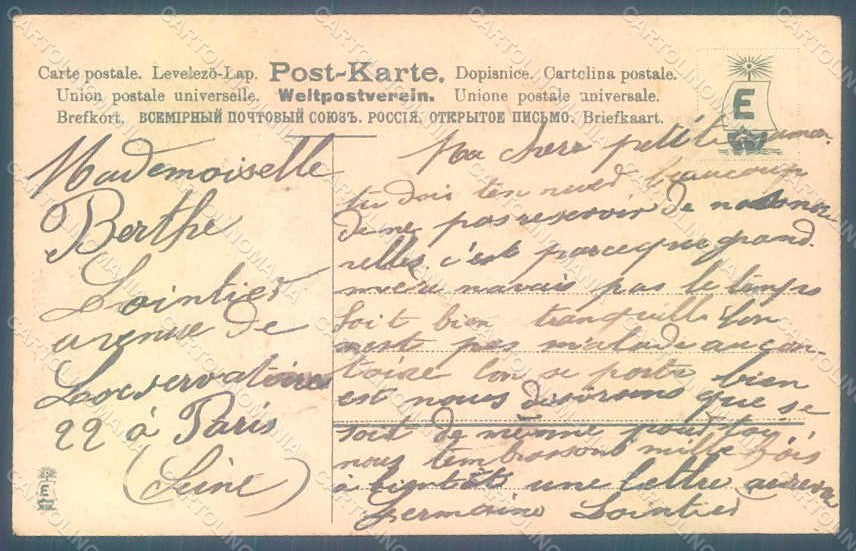 Carte postale. Levelezö-Lap. Post-Karte. Dopisnice. Cartolina postale.
Union postale universelle. Weltpostverein. Unione postale universale.
Brefkort. ВСЕМІРНЫЙ ПОЧТОВЫЙ СОЮЗЪ. РОССІЯ. ОТКРЫТОЕ ПИСЬМО. Briefkaart.
E
Mademoiselle
Berthe
Lointier
avenue de
Laoservatoires
22 à Paris
(Seine)
E
Ma chere petite
tu dois ten beaucoup
de ne pas reservoir de nos nou
relles c'est parceque grand
mere navais pas le temps
Soit bien tranquille lon
nest pas malade au con-
traire lon se porte bien
est nous desirons que se
soit de même pour toi
nous tembrassons mille fois
à bientôt une lettre
Germaine Lointier
CARTOLINOMANIA